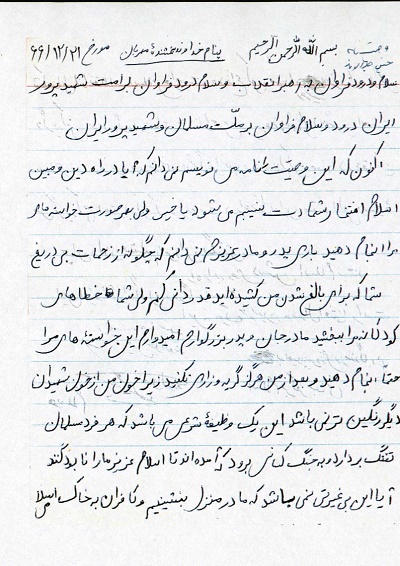 وصیت نامه
بسم الله الرحمن الرحیم بنام خداوند بخشندهٔ مهربان مورخ ۶۶/۱۲/۲۱
سلام و درود فراوان به رهبر انقلاب و سلام و درود فراوان بر امت شهید پرور
ایران درود و سلام فراوان بر ملت مسلمان و شهید پرور ایران
اکنون که این وصیت نامه می نویسم نمی دانم که آیا در راه دین و میهن
اسلام افتخار شهادت نصیبم می شود یا خیر ولی بهر صورت خواسته های
مرا انجام دهید باری پدر و مادر عزیزم نمی دانم که چگونه از زحمات بی دریغ
شما که برای بالغ شدن من کشیده اید قدردانی کنم ولی شما خطاهای
کودکانه مرا ببخشید مادر جان و پدر بزرگوارم امیدوارم این خواسته های مرا
حتماً انجام دهید و بعد از من هرگز گریه و زاری نکنید زیرا خون من از خون شهیدان
دیگر رنگین تر نمی باشد این یک وظیفهٔ شرعی می باشد که هر فرد مسلمان
تفنگ بردارد و به جنگ کسانی برود که آمده اند تا اسلام عزیز ما را نابود کنند
آیا این بی غیرتی نمی باشد که ما در منزل بنشینیم و کافران به خاک اسلام